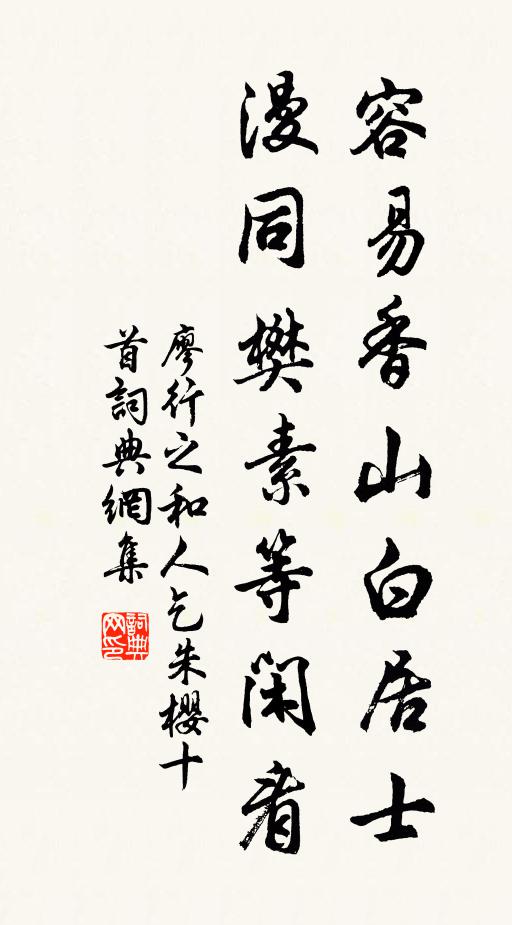 容易香山白居士
漫同樊素等閑看
廖行之和人乞朱櫻十
首詞典網集
詞典网印